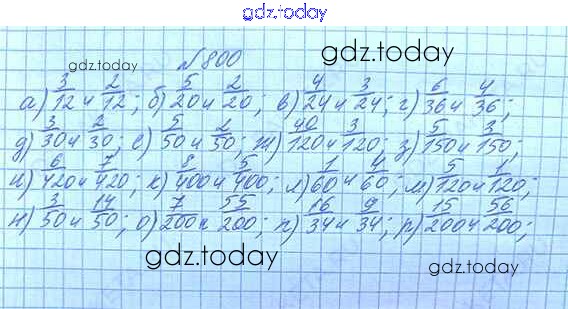 gdz.today
№800
gdz.today gdz.today
а) 3/12 и 2/12; б) 5/20 и 2/20; в) 4/24 и 3/24; г) 6/36 и 4/36;
д) 3/30 и 2/30; е) 5/50 и 2/50; ж) 40/120 и 3/120; з) 5/150 и 3/150;
и) 6/420 и 7/420; к) 8/400 и 5/400; л) 1/60 и 4/60; м) 5/120 и 1/120;
н) 3/50 и 14/50; о) 7/200 и 55/200; п) 16/34 и 9/34; р) 15/200 и 56/200;
gdz.today gdz.today